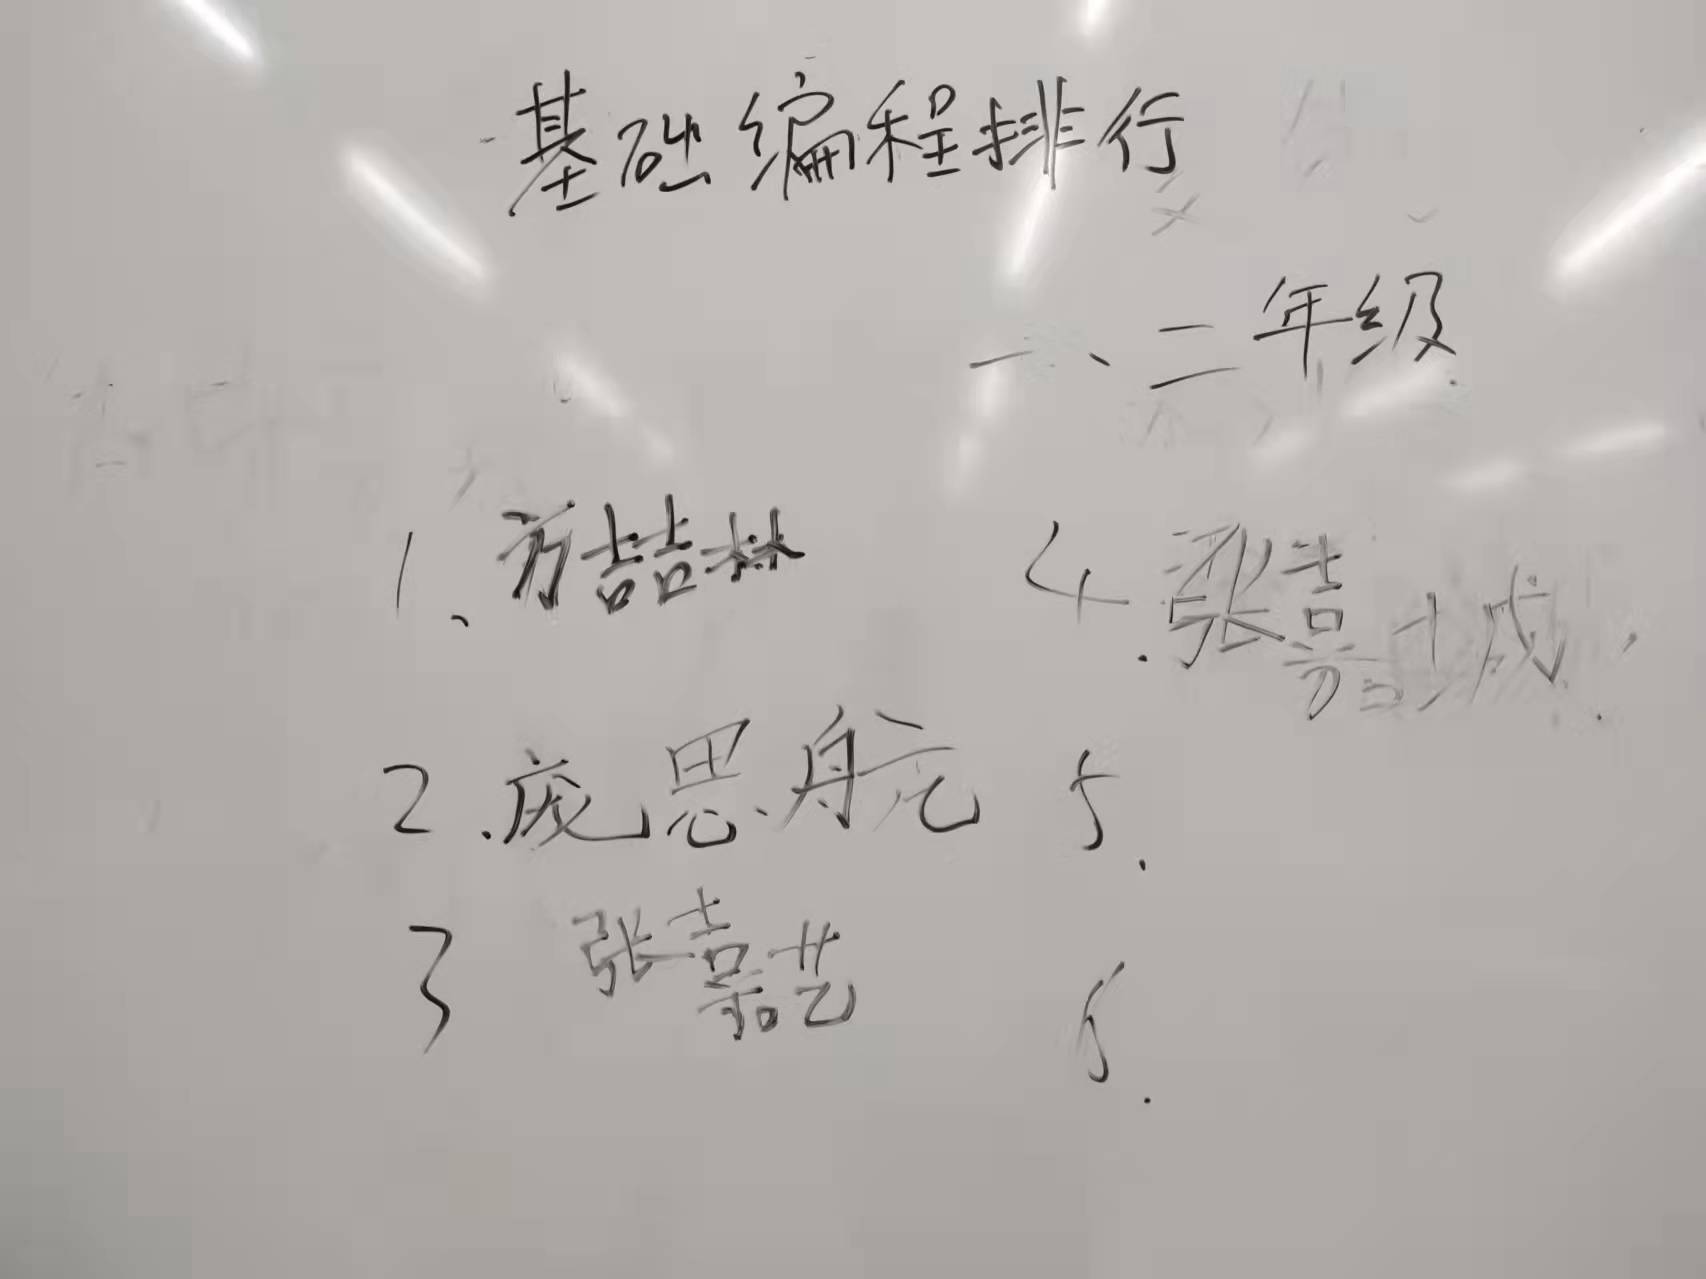 基础编程排行
一、二年级
1、方喆林
2.庞思航
3 张嘉艺
4.张嘉
5.
6.